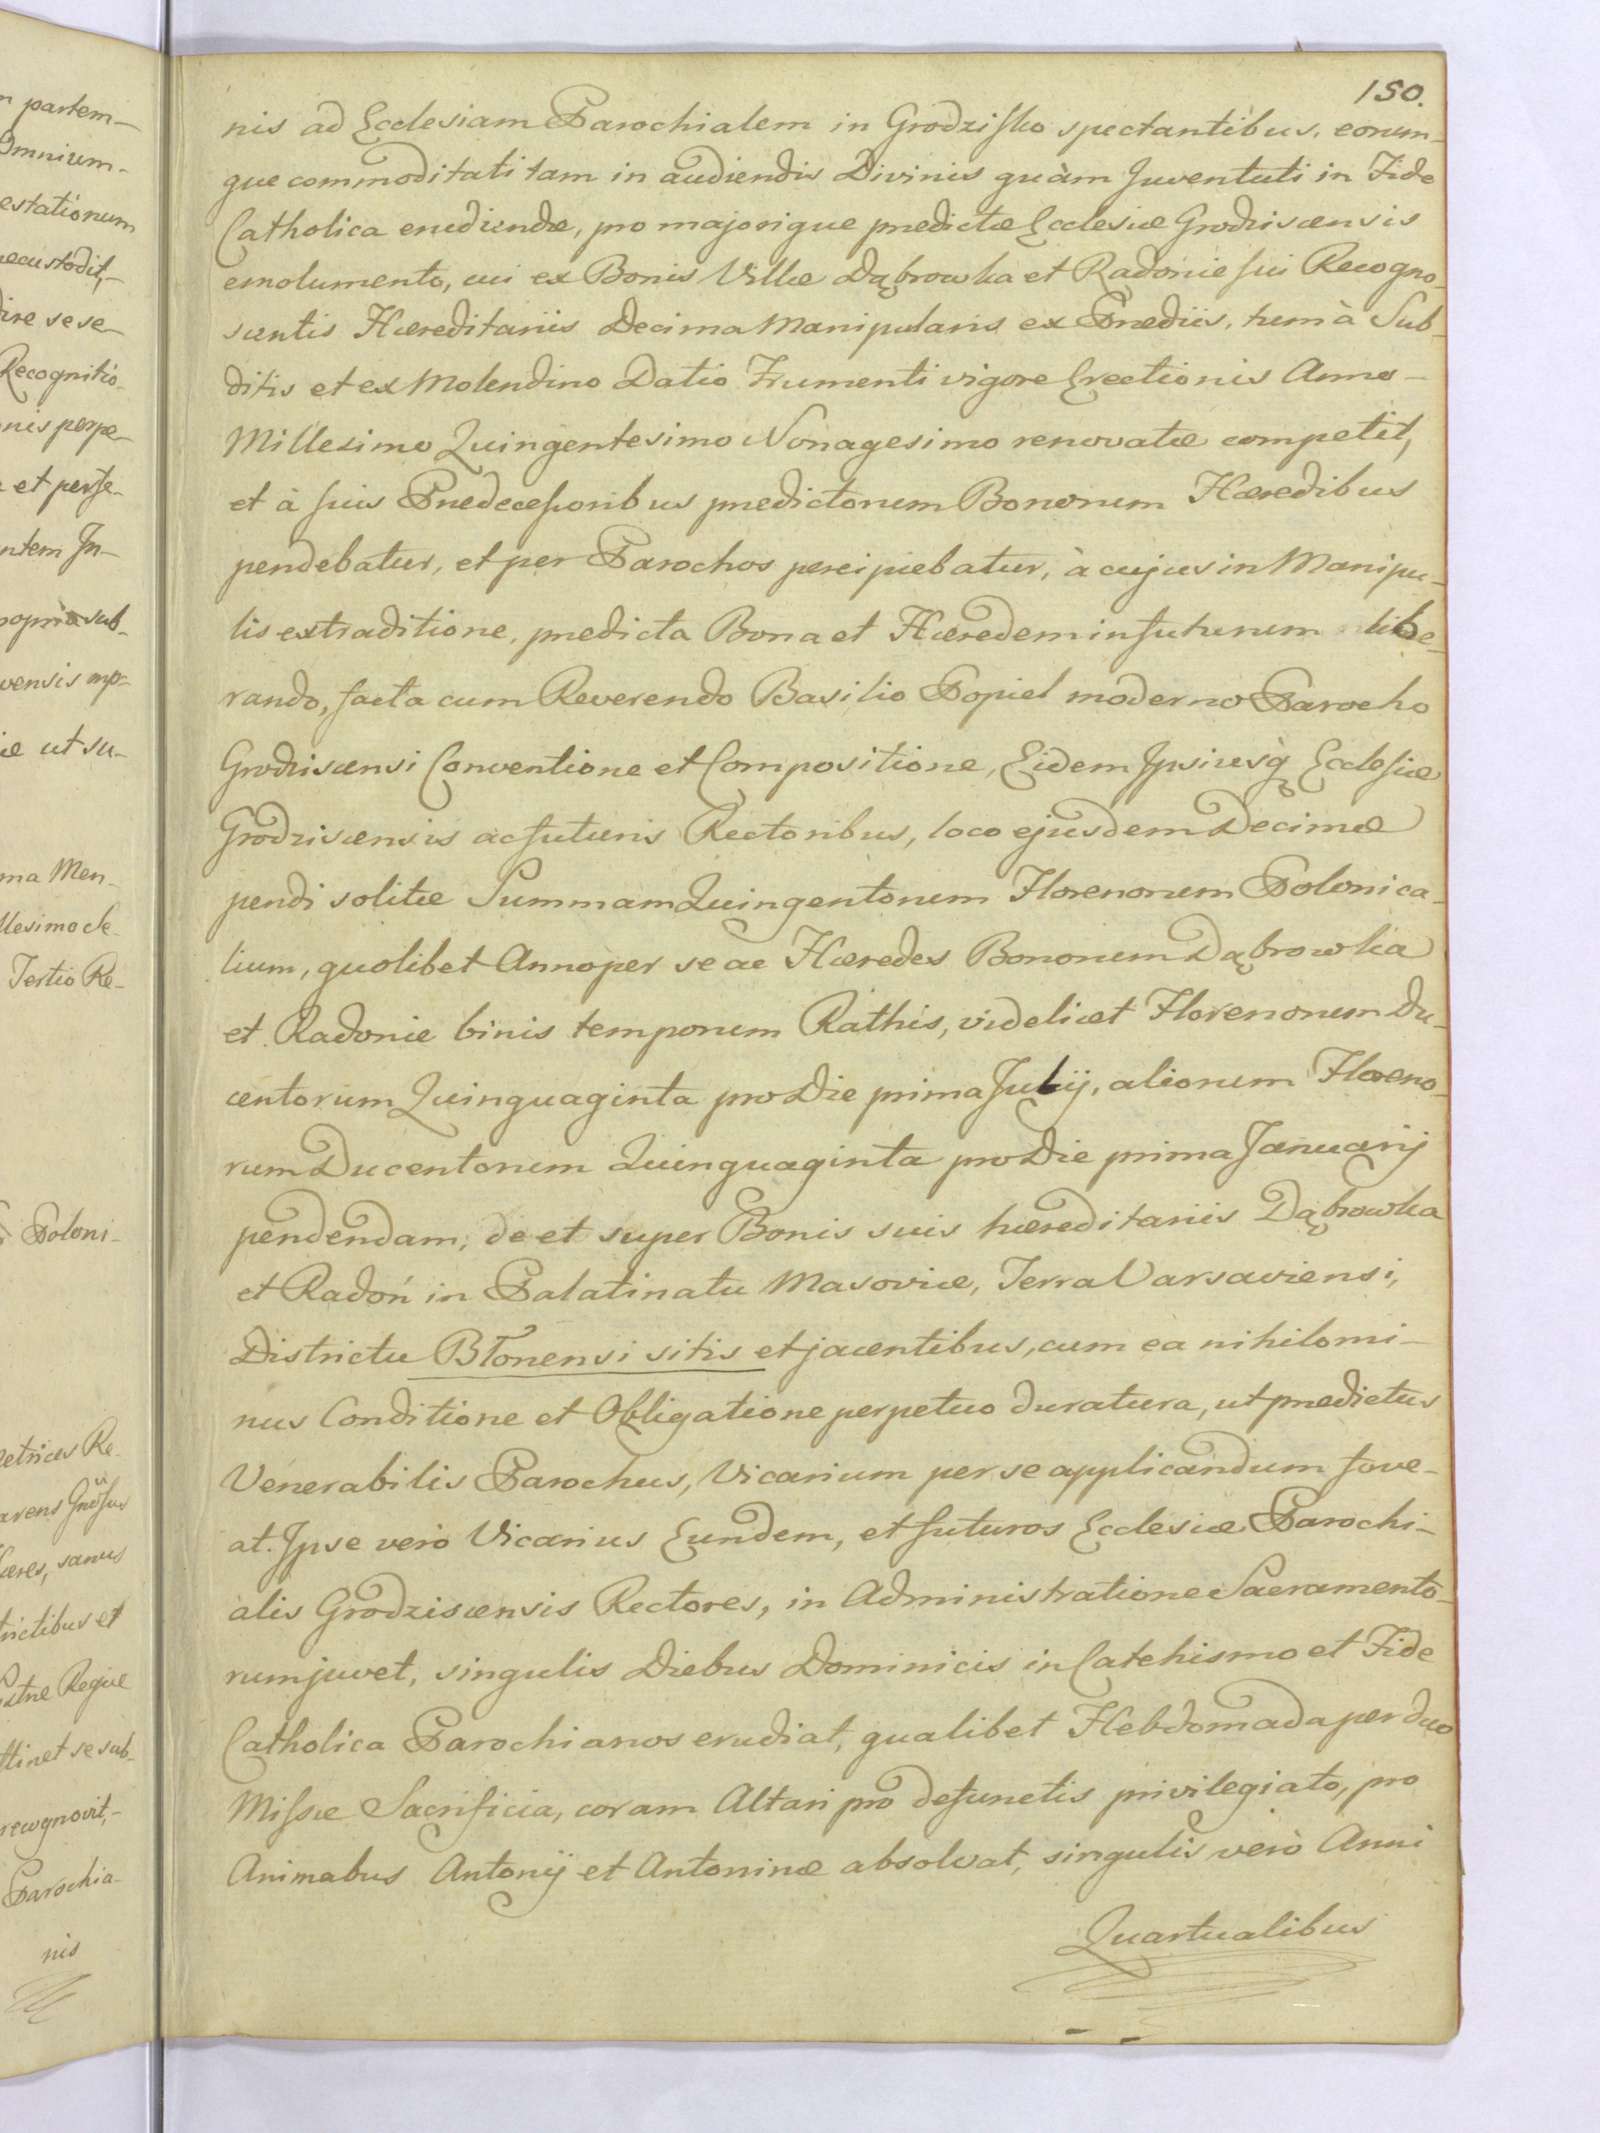 n partem-
Omnium-
estationum
recustodit,-
dire se se-
Recognitio-
nis perpe-
et perse-
ntem In-
propria sub-
vensis mp-
iæ ut su-
ma Men-
llesimo Se-
Tertio Re-
Poloni-
Haeres, sanus
trictibus et
Regiæ
ttinet se sub-
recognovit,-
Parochia-
nis
150.
nis ad Ecclesiam Parochialem in Grodzisko spectantibus, eorum-
que commoditati tam in audiendis Divinis quàm Juventuti in Fide
Catholica erudiendæ, pro majorique prædictæ Ecclesiæ Grodziscensis
emolumento, cui ex Bonis Villæ Dąbrowka et Radonie sui Recogno-
scentis Hæreditariis Decima Manipularis ex Prædiis, tum à Sub-
ditis et ex Molendino Datio Frumenti vigore Erectionis Anno-
Millesimo Quingentesimo Nonagesimo renovatæ competit,
et à suis Prædecessoribus prædictorum Bonorum Hæredibus
pendebatur, et per Parochos percipiebatur, à cujus in Manipu-
lis extraditione, prædicta Bona et Hæredem in futurum libe-
rando, facta cum Reverendo Basilio Popiel moderno Parocho
Grodziscensi Conventione et Compositione, Eidem Ipsiusq̀ Ecclesiæ
Grodziscensis ac futuris Rectoribus, loco ejusdem Decimæ
pendi solitæ Summam Quingentorum Florenorum Polonica-
lium, quolibet Anno per se ac Hæredes Bonorum Dąbrowka
et Radonie binis temporum Rathis, videlicet Florenorum Du-
centorum Quinquaginta pro Die prima Julij, aliorum Floreno-
rum Ducentorum Quinquaginta pro Die prima Januarij
pendendam, de et super Bonis suis hæreditariis Dąbrowka
et Radoń in Palatinatu Masoviæ, Terra Varsaviensi,
Districtu Błonensi sitis et jacentibus, cum ea nihilomi-
nus Conditione et Obligatione perpetuo duratura, ut prædictus
Venerabilis Parochus, Vicarium per se applicandum fove-
at. Ipse verò Vicarius Eundem, et futuros Ecclesiæ Parochi-
alis Grodziscensis Rectores, in Administratione Sacramento-
rum juvet, singulis Diebus Dominicis in Catehismo et Fide
Catholica Parochianos erudiat, qualibet Hebdomada per duo
Missæ Sacrificia, coram Altari pro defunctis privilegiato, pro
Animabus Antonij et Antoninæ absolvat, singulis verò Anni
Quartualibus